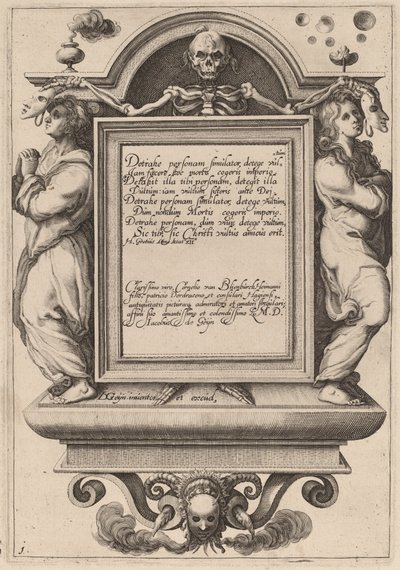 Detrahe personam simulator, detege vul-
tum
Nam facere hoc mortis cogeris imperio.
Detrahit illa tibi personam, detegit illa
Vultum: iam vultum soteris ante Dei.
Detrahe personam simulator, detege vultum,
Dum nondum Mortis cogeris imperio.
Detrahe personam, dum vivis detege vultum,
Sic tibi, sic Christi vultus amicus erit.
H. Grotius
Clarissimo viro, Cornelio van Blijenburch Hermanni
filio, patricio Dordraceno, et consulari
antiquitatis picturaeq. admiratori et amatori singulari,
affini suo amantissimo et colendissimo L. M. D.
Iacobus de Geijn
DGeijn inventor et excud.
1.